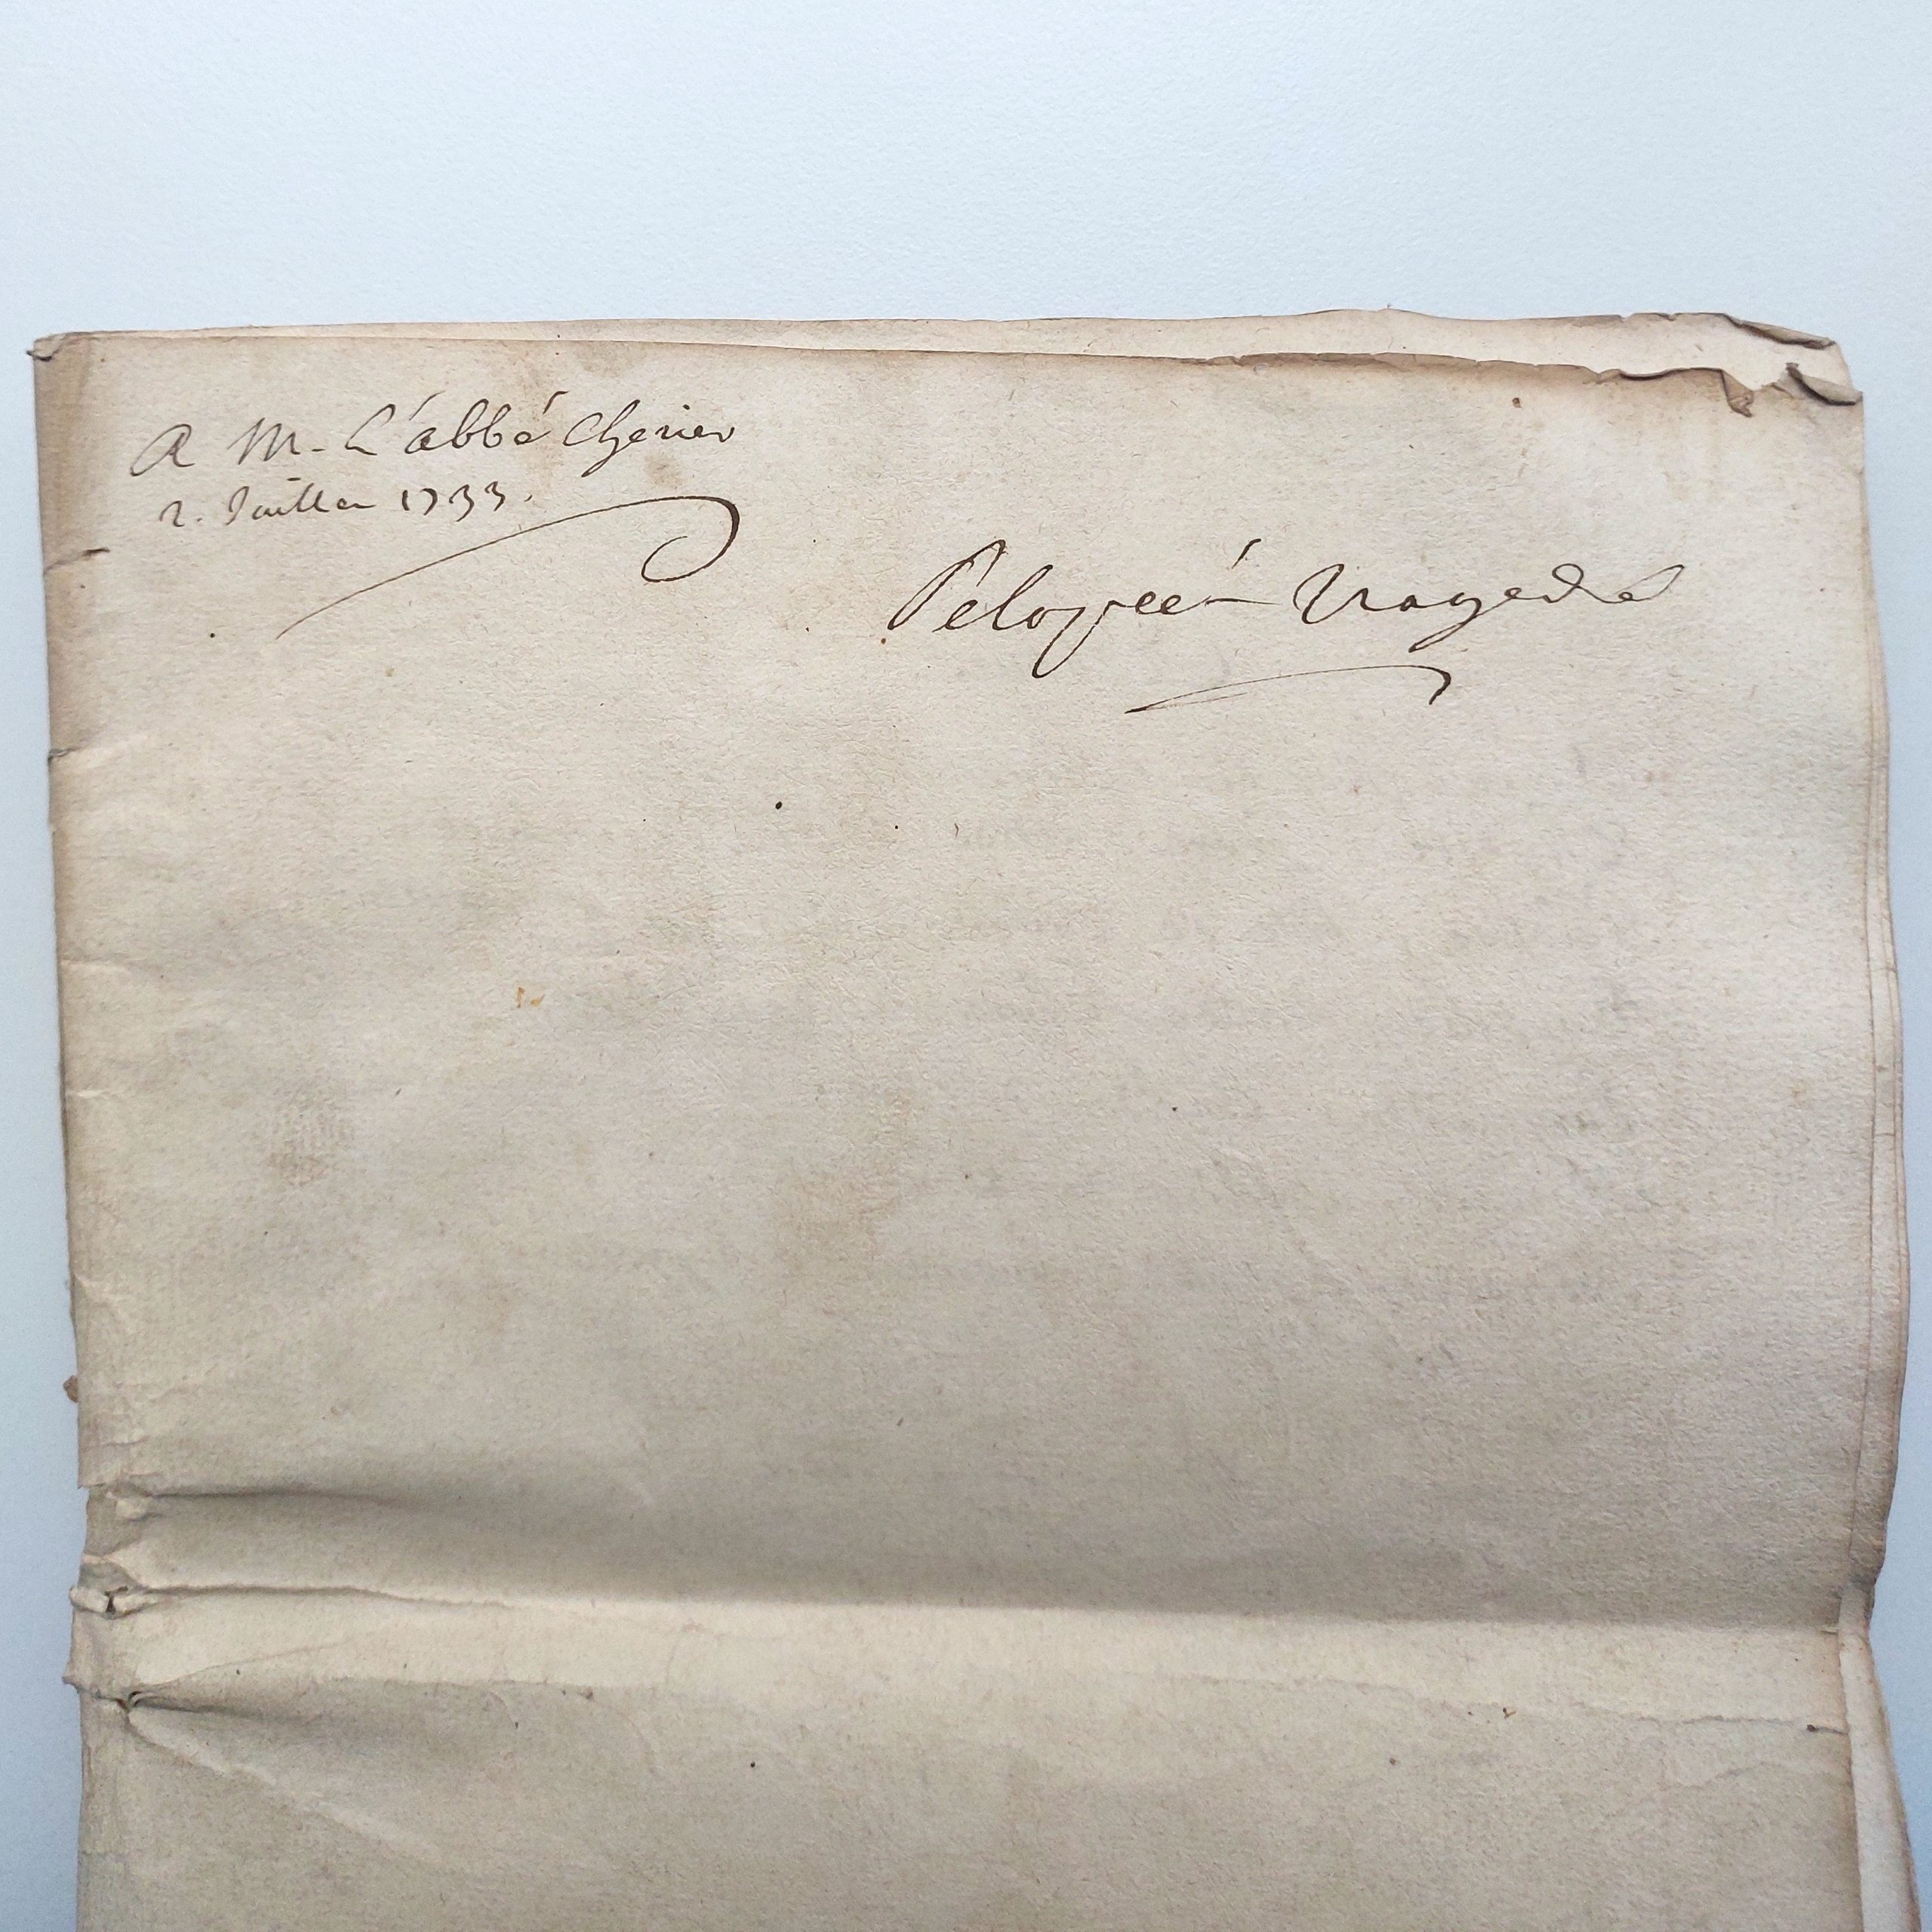 A M. L'abbé Cherier
2. Juillet 1733.
Pelopeé Tragedie